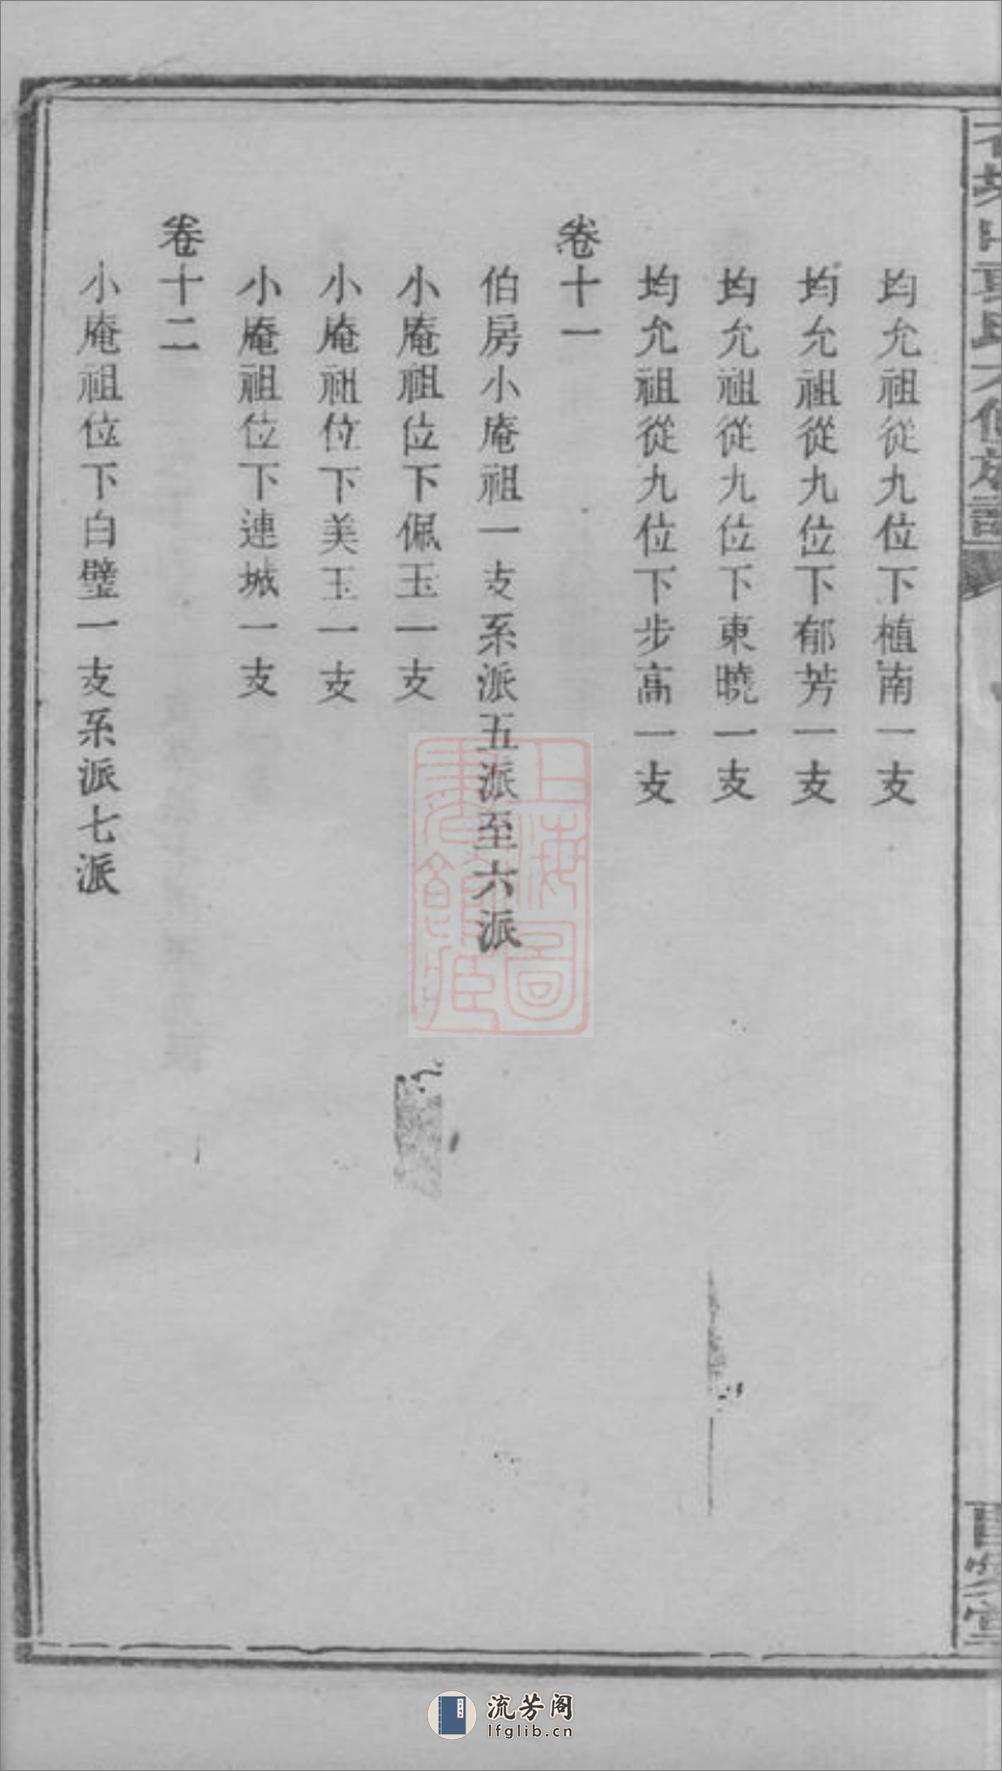 均允祖從九位下植南一支
均允祖從九位下郁芳一支
均允祖從九位下東曉一支
均允祖從九位下步高一支
卷十一
伯房小庵祖一支系派五派至六派
小庵祖位下佩玉一支
小庵祖位下美玉一支
小庵祖位下連城一支
卷十二
小庵祖位下白璧一支系派七派
上海圖書館藏
流芳阁
lfglib.cn